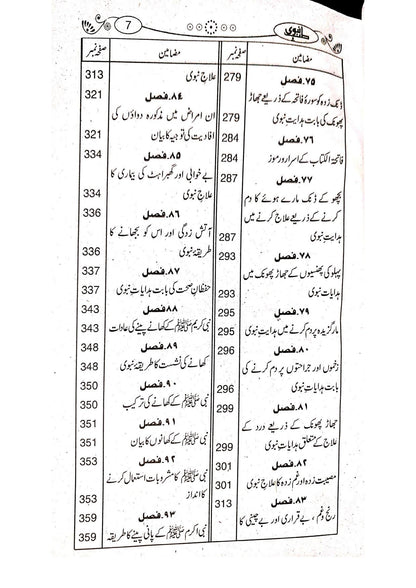 7
طب نبوی
مضامین صفحہ نمبر
۷۵۔فصل 279
ڈنک زدہ کو سورۂ فاتحہ کے ذریعے جھاڑ
پھونک کی بابت ہدایتِ نبوی 279
۷۶۔فصل 284
فاتحۃ الکتاب کے اسرار و رموز 284
۷۷۔فصل 287
بچھو کے ڈنک مارے ہوئے کا دم
کرنے کے ذریعے علاج کرنے میں
ہدایتِ نبوی 287
۷۸۔فصل 293
پہلو کی پھنسیوں کے جھاڑ پھونک میں
ہدایات نبوی 293
۷۹۔فصل 295
مارگزیدہ پر دم کرنے میں ہدایتِ نبوی 295
۸۰۔فصل 296
زخموں اور جراحتوں پر دم کرنے کی
بابت ہدایاتِ نبوی 296
۸۱۔فصل 299
جھاڑ پھونک کے ذریعے درد کے
علاج کے متعلق ہدایاتِ نبوی 299
۸۲۔فصل 301
مصیبت زدہ اور غم زدہ کا علاجِ نبوی 301
۸۳۔فصل 313
رنج وغم، بے قراری اور بے چینی کا
مضامین صفحہ نمبر
علاجِ نبوی 313
۸۴۔فصل 321
ان امراض میں مذکورہ دواؤں کی
افادیت کی توجیہ کا بیان 321
۸۵۔فصل 334
بے خوابی اور گھبراہٹ کی بیماری کا
علاجِ نبوی 334
۸۶۔فصل 336
آتش زدگی اور اس کو بجھانے کا
طریقۂ نبوی 336
۸۷۔فصل 337
حفظانِ صحت کی بابت ہدایاتِ نبوی 337
۸۸۔فصل 343
نبی کریم ﷺ کے کھانے پینے کی عادات 343
۸۹۔فصل 348
کھانے کی نشست کا طریقۂ نبوی 349
۹۰۔فصل 350
نبی ﷺ کے کھانے کی ترکیب 350
۹۱۔فصل 351
نبی ﷺ کے کھانوں کا بیان 351
۹۲۔فصل 353
نبی ﷺ کا مشروبات استعمال کرنے
کا انداز 353
۹۳۔فصل 359
نبی اکرم ﷺ کے پانی پینے کا طریقہ 359